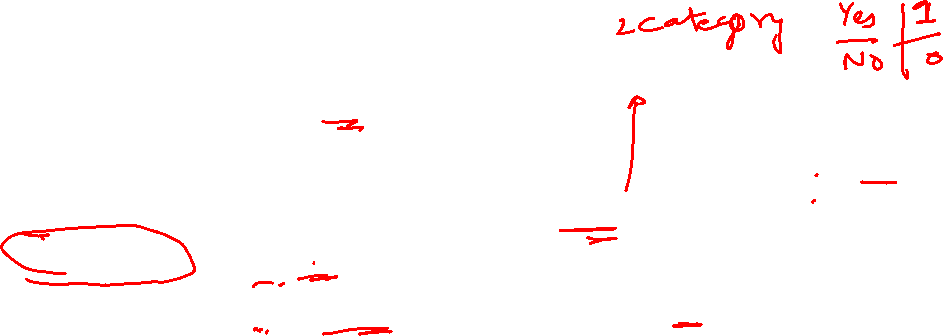 2 category Yes | 1
No | 0